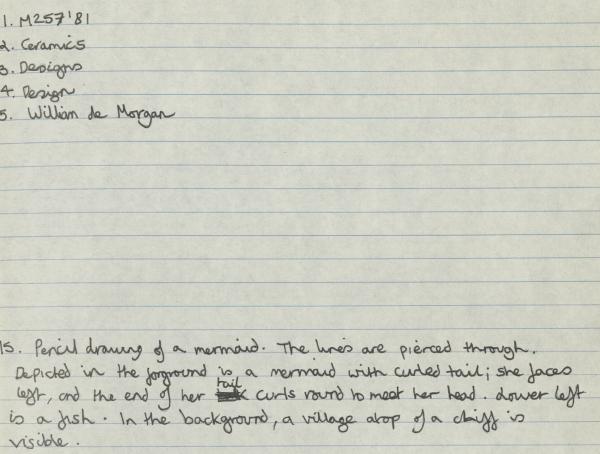 1. M257'81
2. Ceramics
3. Designs
4. Design
5. William de Morgan
15. Pencil drawing of a mermaid. The lines are pierced through.
Depicted in the forground is a mermaid with curled tail; she faces
left, and the end of her tail curls round to meet her head. Lower left
is a fish. In the background, a village atop of a cliff is
visible.